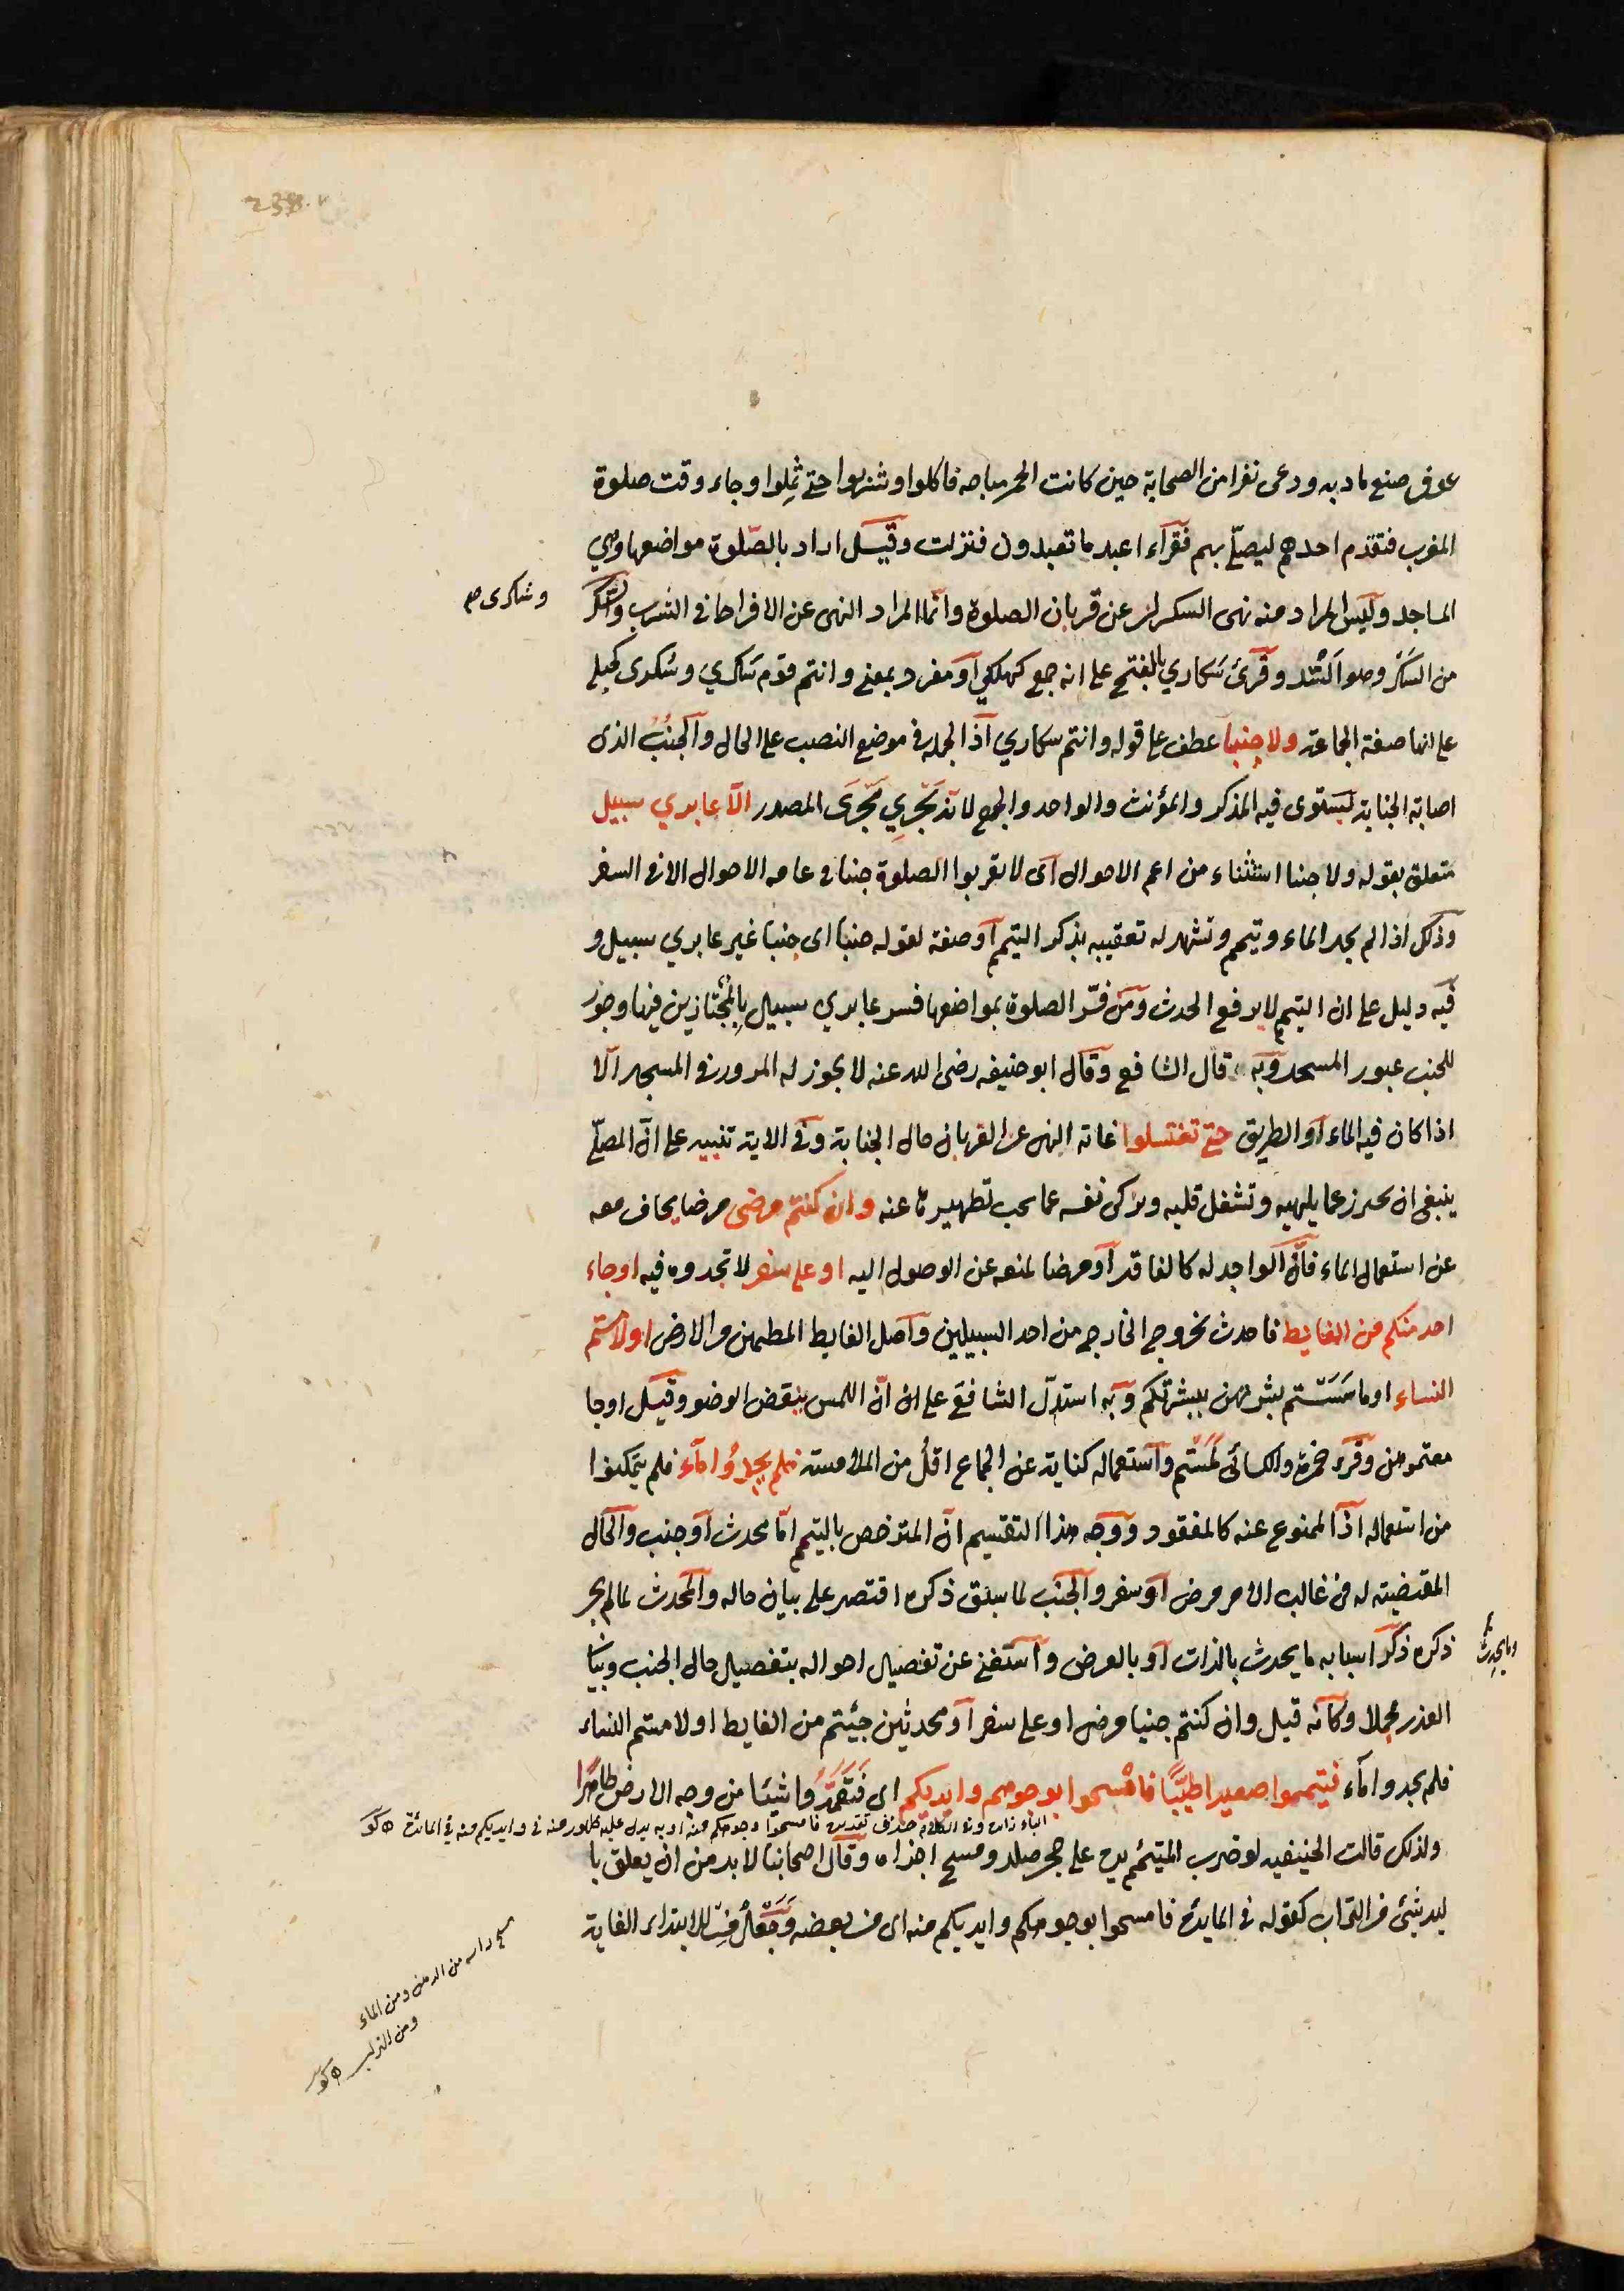 عوف صنع مادبه ودعى نفرا من الصحابة حين كانت الخمر مباحه فاكلوا وشربوا حتى ثملوا وجاء وقت صلوة
المغرب فتقدم احدهم ليصلّي بهم فقرآء اعبد ما تعبدون فنزلت وقيل اراد بالصّلوة مواضعها وهي
المساجد وليس المراد منه نهى السكران عن قربان الصلوة وانما المراد النهى عن الافراط في الشرب والسكر
وسكرى صح
من السَكر وهو السّد وقرئ سَكاري بالفتح على انه جمع كهلكي او مفرد بمعنى وانتم قوم سَكري وسُكرى كحبلى
على انها صفة الجماعة ولا جنبا عطف على قوله وانتم سكاري اذ الجمله في موضع النصب على الحال والجُنُبُ الذى
اصابته الجنابة يستوى فيه المذكر والمؤنث والواحد والجمع لانه يَجرِي مَجرَى المصدر الّا عابري سبيل
متعلق بقوله ولا جنبا استثناء من اعم الاحوال اى لا تقربوا الصلوة جنبا في عامه الاحوال الا في السفر
وذلك اذا لم يجد الماء وتيمم وتشهد له تعقيبه بذكر التيمم او صفة لقوله جنبا اى جنبا غير عابري سبيل و
فيه دليل على ان التيمم لا يرفع الحدث ومن فسّر الصلوة بمواضعها فسر عابري سبيل بالمُجتازين فيها وجوز
للجنب عبور المسجد وبه قال الشافعي وقال ابو حنيفه رضى الله عنه لا يجوز له المرور في المسجد الّا
اذا كان فيه الماء او الطريق حتى تغتسلوا غاية النهى عن القربان حال الجنابة وفي الاية تنبيه على انّ المصلّي
ينبغى ان يحترز عما يلهيه وتشغل قلبه ويزكى نفسه عما يجب تطهيرها عنه وان كنتم مرضى مرضا يخاف معه
عن استعمال الماء فانّ الواجد له كالفاقد او مرضا لمنعه عن الوصول اليه او على سفر لا تجدوه فيه او جاء
احد منكم من الغايط فاحدث بخروج الخارج من احد السبيلين واصل الغايط المطمئن من الارض او لامستم
النساء او ماسَسَتم بشرتهن ببشرتكم وبه استدلّ الشافعي على ان انّ اللمس ينقض الوضو وقيل او جا
معتموهن وقرء حمزة والكسائي لَمَستم واستعماله كناية عن الجماع اقلُ من الملامسة فلم يجدُوا مآء فلم يتمكنوا
من استعماله اذ الممنوع عنه كالمفقود ووجه هذا التقسيم انّ المترخص بالتيمم امّا محدث او جنب والحال
المقتضيته له في غالب الامر مرض او سفر والجنب لما سبق ذكره اقتصر على بيان حاله والمحدث لما لم يجر
ذكره ذكر اسبابه ما يحدث بالذات او بالعرض واستغنى عن تفصيل احواله بتفصيل حال الجنب وبيان
وما يحدث
العذر مجملا وكانه قيل وان كنتم جنبا مرضى او على سفر او محدثين جيئتم من الغايط او لامستم النساء
فلم يجدوا مآء فتيمموا صعيدا طيّبًا فامسحوا بوجوهكم وايديكم اى فَتَعَمَّدُوا شيئا من وجه الارض طاهرًا
الباء زائدة وفي الكلام حذف تقديره فامسحوا وجوهكم منه او به يدل عليه ظهور منه في وايديكم منه في المائدة كو
ولذلك قالت الحنيفيه لو ضرب المتيمّم يده على حجر صلد ومسح اجزاه وقال اصحابنا لا بد من ان يعلق با
ليد شئ من التراب كقوله في المايدة فامسحوا بوجوهكم وايديكم منه اى من بعضه وجَعلُ من لابتداء الغاية
مسح راسه من الدهن ومن الماء
ومن التراب كو